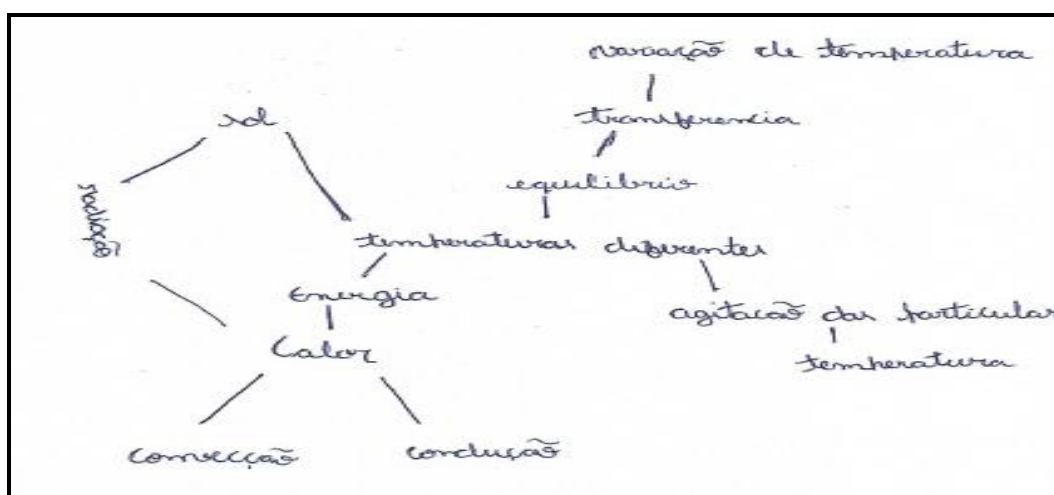 variação de temperatura
sol
transferencia
equilibrio
radiação
temperaturas diferentes
Energia
agitacaõ das particulas
Calor
temperatura
convecção
condução